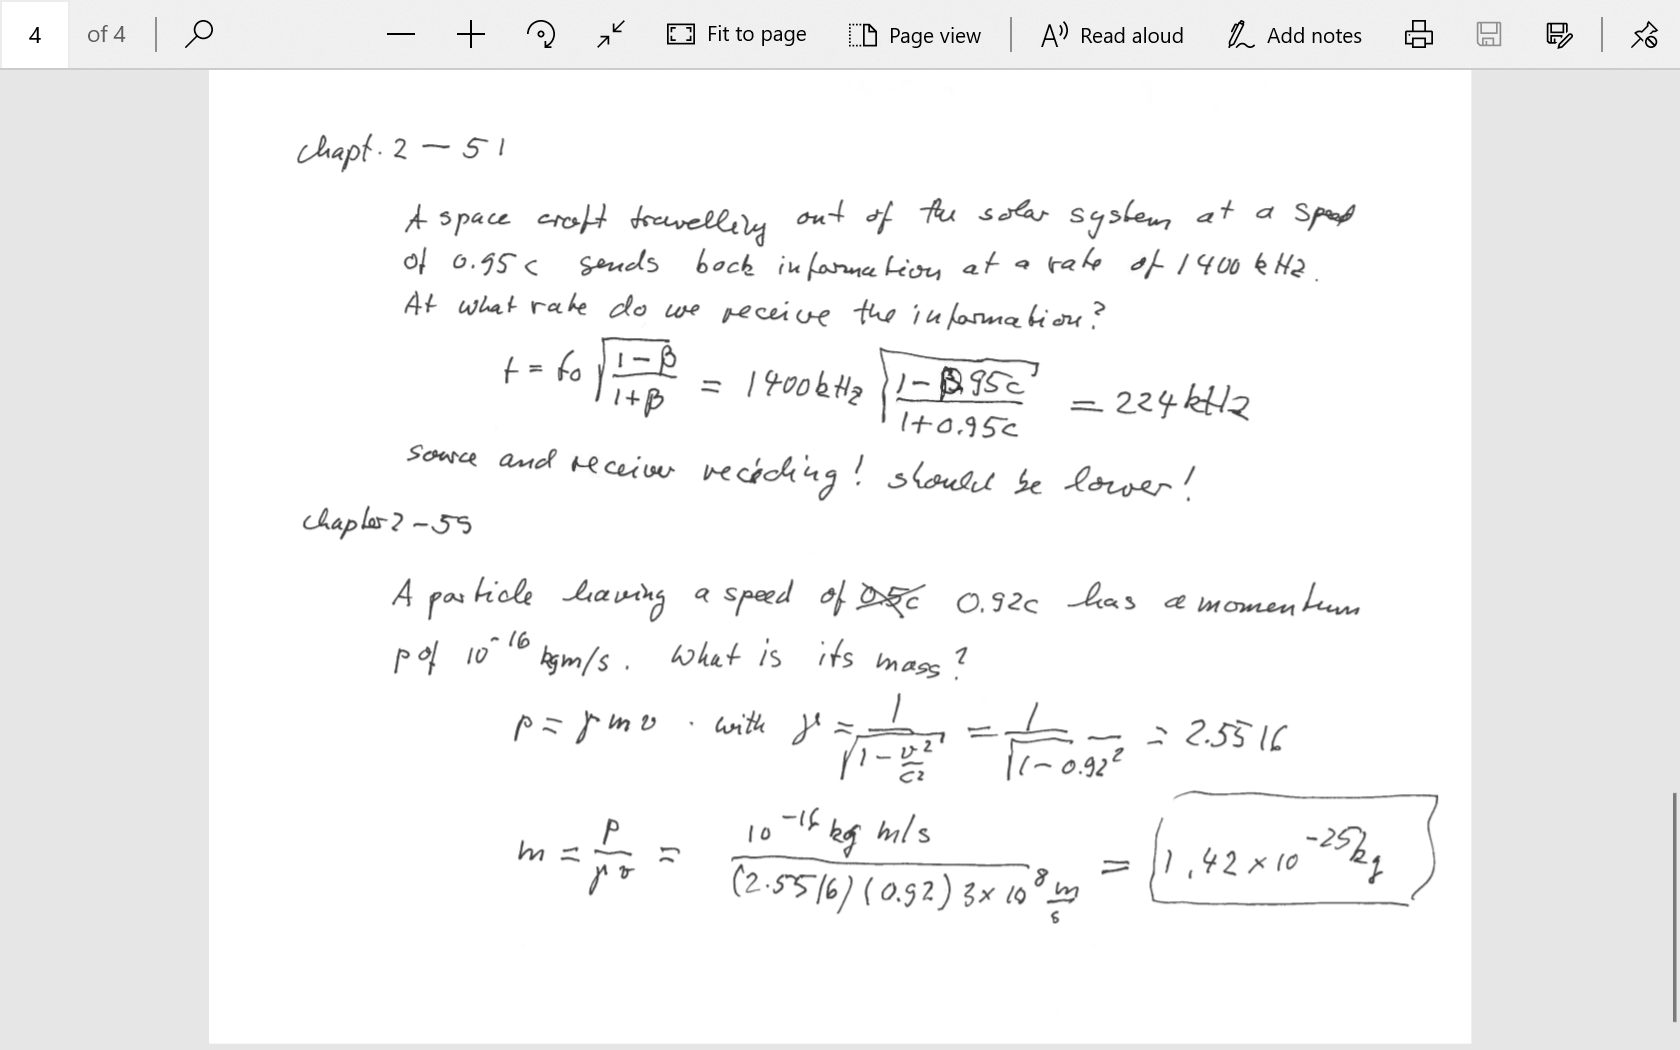 4 of 4 Fit to page Page view Read aloud Add notes
Chapt. 2 — 51
A space craft travelling out of the solar system at a speed
of 0.95 c sends back information at a rate of 1400 kHz.
At what rate do we receive the information?
f = f₀ √((1-β)/(1+β)) = 1400 kHz √((1-0.95c)/(1+0.95c)) = 224 kHz
source and receiver receding! should be lower!
Chapter 2 - 55
A particle having a speed of 0.5c 0.92c has a momentum
p of 10⁻¹⁶ kgm/s. What is its mass?
p = γ m v . with γ = 1/√(1 - v²/c²) = 1/√(1-0.92²) = 2.5516
m = p/γv = 10⁻¹⁶ kg m/s / (2.5516)(0.92) 3×10⁸ m/s = 1.42×10⁻²⁵ kg